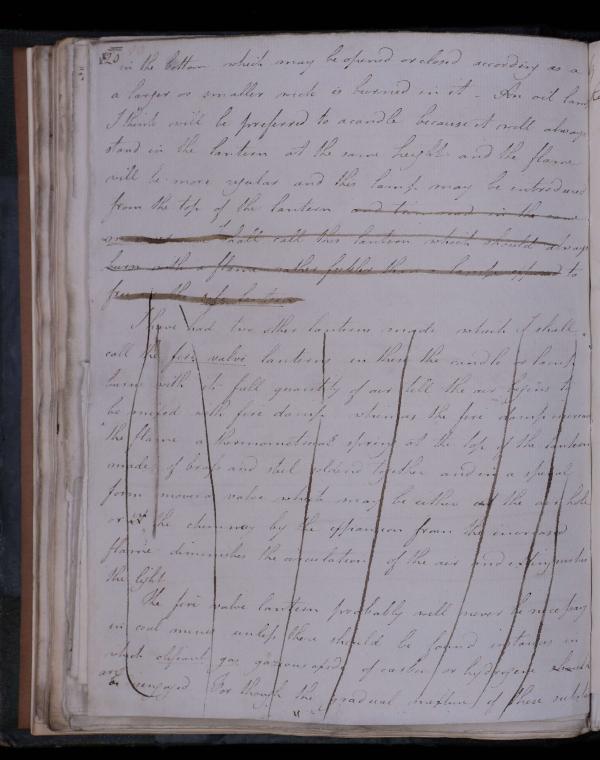 20
in the bottom which may be opened or closed according as a
a larger or smaller wick is burned in it - An oil lam
I think will be preferred to a candle because it will always
stand in the lantern at the same height and the flame
will be more regular and this lamp may be introduced
from the top of the lantern and in the same
I shall call this lantern which should always
burn with a flame rather feebler than a lamp exposed to
free air the safe lantern
I have had two other lanterns made which I shall
call the fire valve lanterns in these the candle or lamp
burns with its full quantity of air till the air begins to
be mixed with fire damp whereas the fire damp increases
the flame a thermometrical spring at the top of the lantern
made of brass and steel soldered together and in a spiral
form moves a valve which may be either at the air hole
or at the chimney by the expansion from the increased
flame diminishes the circulation of the air and extinguishes
the light.
The fire valve lantern probably will never be necessary
in coal mines unless there should be found instances in
which olefiant gas gaseous oxide of carbon or hydrogene
are disengaged For though the gradual mixture of these